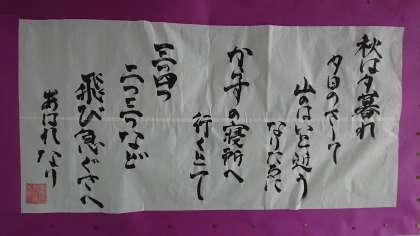 秋は夕暮れ
夕日のさして
山のはいと近う
なりたるに
からすの寝所へ
行くとて
三つ四つ
二つ三つなど
飛び急ぐさへ
あはれなり